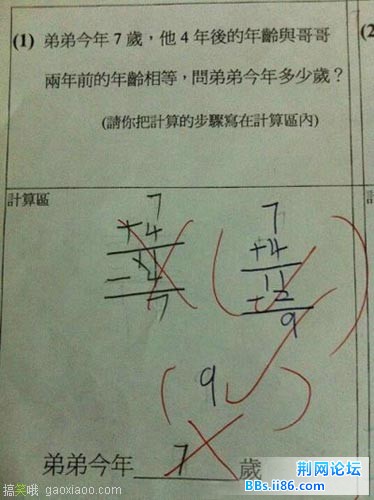 (1) 弟弟今年 7 歲，他 4 年後的年齡與哥哥
(2
兩年前的年齡相等，問弟弟今年多少歲？
(請你把計算的步驟寫在計算區內)
計算區
7
+4
11
- 4
7
7
+4
11
- 2
9
(9✓)
弟弟今年 7 歲
搞笑哦 gaoxiaoo.com
荆网论坛
BBs.ii86.com